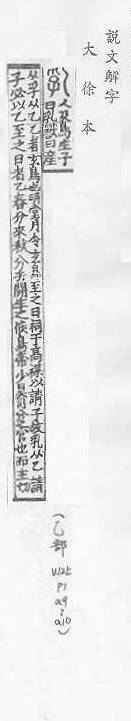 說文解字
大徐本
人及鳥生子
曰乳獸曰產
从孚从乙乙者玄鳥也明堂月令玄鳥至之日祠于高禖以請子故乳从乙請
子必以乙至之日者乙春分來秋分去開生之候鳥帝少昊司分之官也而主切
(乙部
V12上
P1
a9
~
a10)